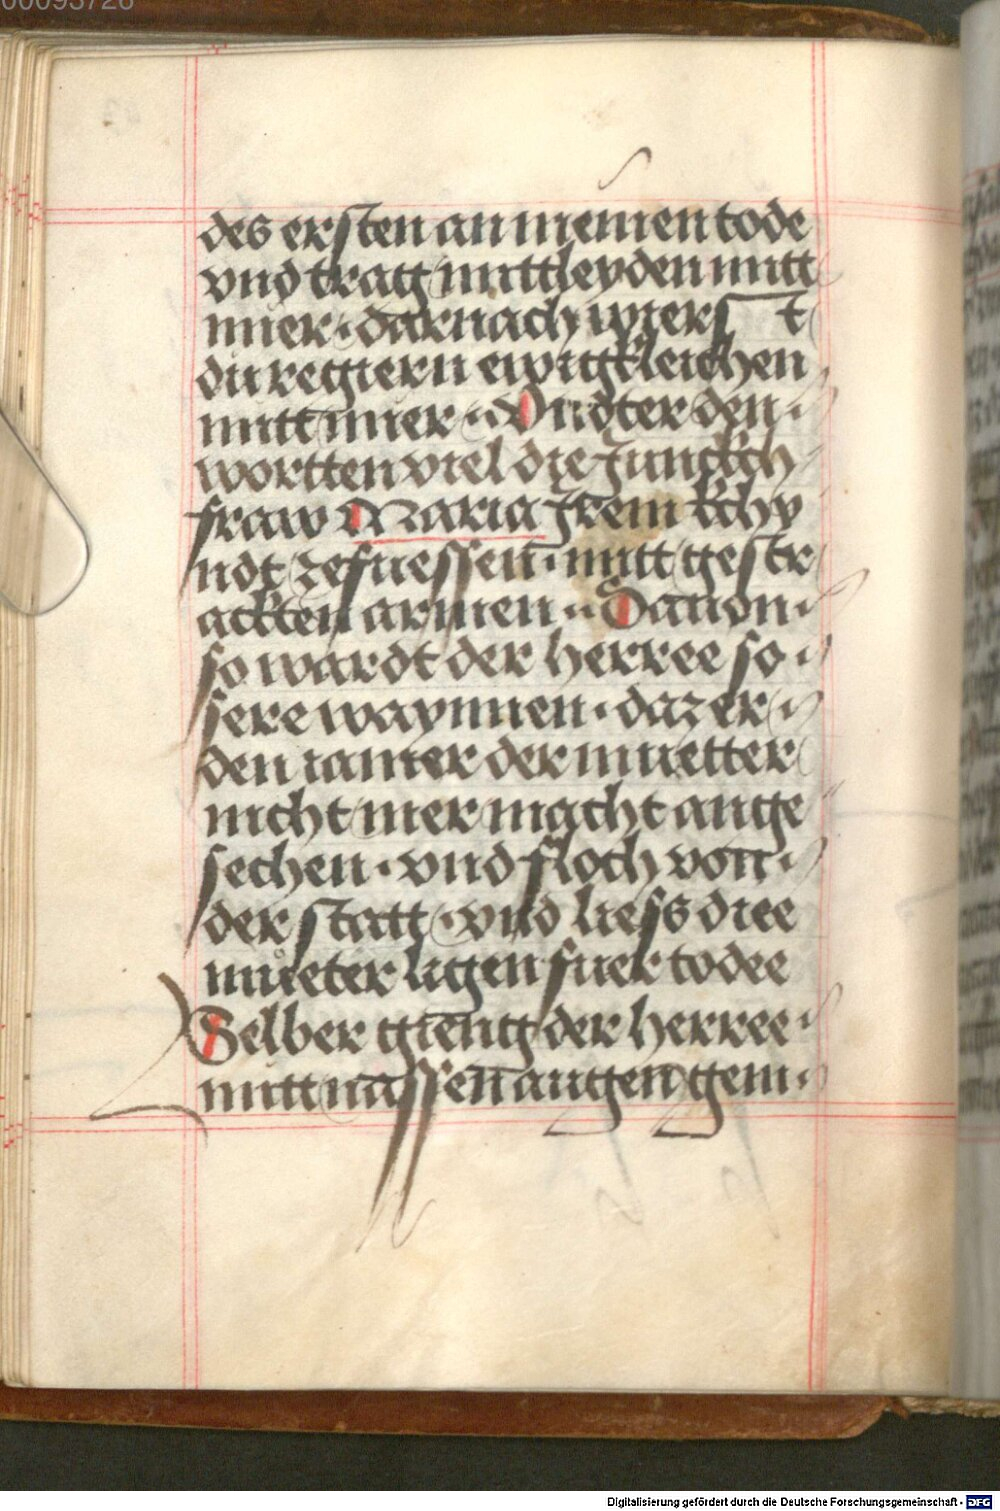 00093726
des ersten an meinen tode
vnd trag mittleyden mitt
mier · darnach wierst
du regiern ewigkleichen
mitt mier · Vndter den
wortten viel die Junckch
fraw Maria Jrem kchy
ndt zefuessen · mitt gestr
ackten armen · Dauon
so wardt der herree so
sere waynnen · daz er
den iamer der muetter
nicht mer macht ange
sechen · vnd floch von
der statt · vnd liess diee
mueter ligen fuer todee
Selber gieng der herree
mitt nassen augen gem
Digitalisierung gefördert durch die Deutsche Forschungsgemeinschaft - DFG